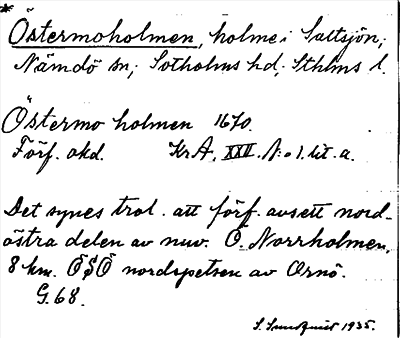 *
Östermoholmen, holme i Saltsjön,
Nämdö sn; Sotholms hd; Sthlms l.
Östermo holmen 1670.
Förf. okd. KrA. XXVI. N:o 1. lit. a.
Det synes trol. att förf. avsett nord-
östra delen av nuv. Ö. Norrholmen,
8 km. ÖSÖ nordspetsen av Ornö.
G.68.
S. Sundquist 1935.